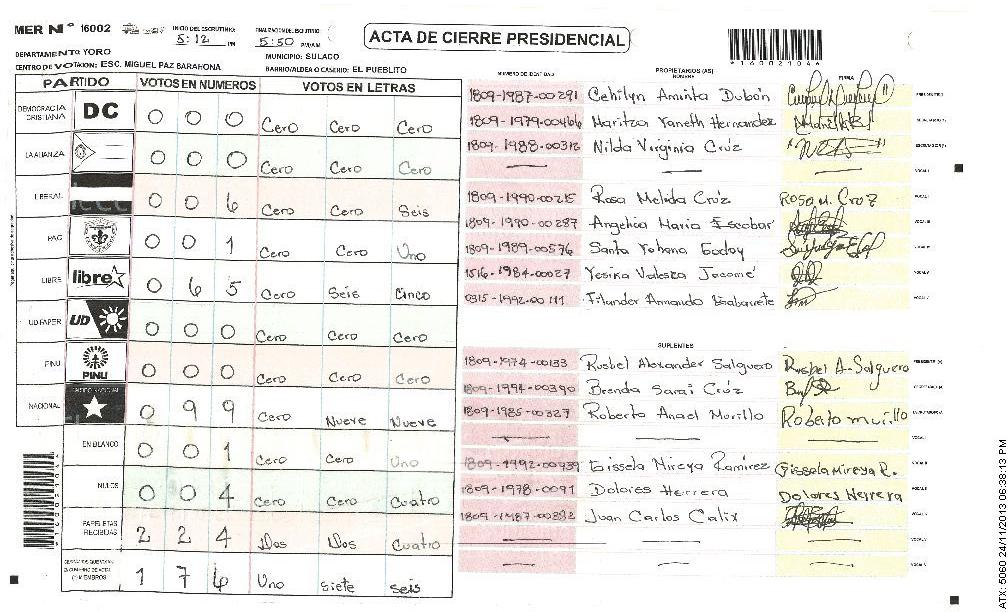 MER Nº 16002
INICIO DEL ESCRUTINIO: 5:12 PM
FINALIZACION DEL ESCRUTINIO 5:50 PM/AM
ACTA DE CIERRE PRESIDENCIAL
DEPARTAMENTO: YORO
MUNICIPIO: SULACO
CENTRO DE VOTACION: ESC. MIGUEL PAZ BARAHONA
BARRIO/ALDEA O CASERIO: EL PUEBLITO
PARTIDO VOTOS EN NUMEROS VOTOS EN LETRAS
DEMOCRACIA CRISTIANA DC 0 0 0 Cero Cero Cero
LA ALIANZA 0 0 0 Cero Cero Cero
LIBERAL 0 0 6 Cero Cero Seis
PAC 0 0 1 Cero Cero Uno
LIBRE libre 0 6 5 Cero Seis Cinco
UD FAPER UD 0 0 0 Cero Cero Cero
PINU PINU 0 0 0 Cero Cero Cero
NACIONAL 0 9 9 Cero Nueve Nueve
EN BLANCO 0 0 1 Cero Cero Uno
NULOS 0 0 4 Cero Cero Cuatro
PAPELETAS RECIBIDAS 2 2 4 Dos Dos Cuatro
1 7 6 Uno Siete Seis
NUMERO DE IDENTIDAD PROPIETARIOS (AS) NOMBRE FIRMA
1809-1987-00291 Cehilyn Aminta Dubón
1809-1979-00466 Maritza Yaneth Hernandez
1809-1988-00312 Nilda Virginia Crúz
1809-1990-00215 Rosa Melida Crúz Rosa M. Cruz
1809-1990-00287 Angelica Maria Escobar
1809-1989-00576 Santa Yohana Godoy
1516-1984-00027 Yesika Valeska Jacomé
0315-1992-00111 Filander Armando
SUPLENTES
1809-1974-00133 Rusbel Alexander Salguero Ruspel A-Salguero
1809-1994-00390 Brenda Sarai Crúz
1809-1985-00327 Roberto Anael Murillo Roberto murillo
1809-1992-00439 Gissela Mireya Ramírez Gissela Mireya R.
1809-1978-0091 Dolores Herrera Dolores Herrera
1809-1987-00392 Juan Carlos Calix
ATX: 5060 24/11/2013 06:38:13 PM